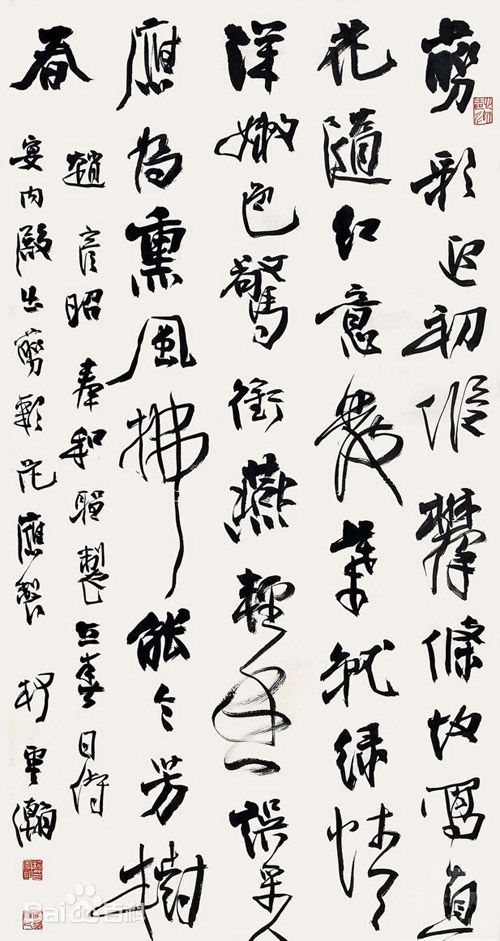 剪彩迎初候攀條故寫真
花隨紅意發葉就綠情
嫩色驚銜燕輕香誤采人
應為熏風拂能令芳樹
春
趙彥昭奉和聖製立春日侍
宴内殿出剪彩花應製 柯雲瀚
Bai百科